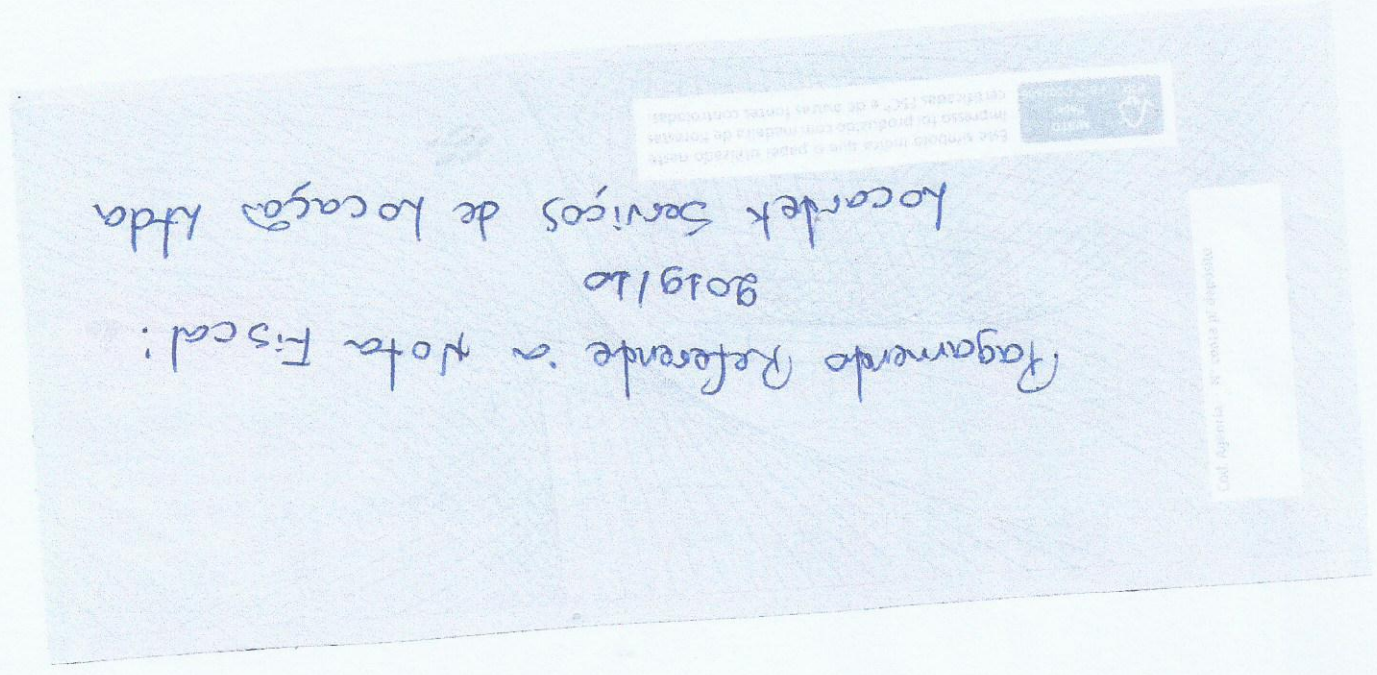 Pagamento Referente à Nota Fiscal:
2019/10
Locardek Serviços de Locação Ltda
Este símbolo indica que o papel utilizado neste
impresso foi produzido com madeira de florestas
certificadas FSC® e de outras fontes controladas.
MISTO
Cod. Agência N. conta p/ depósito